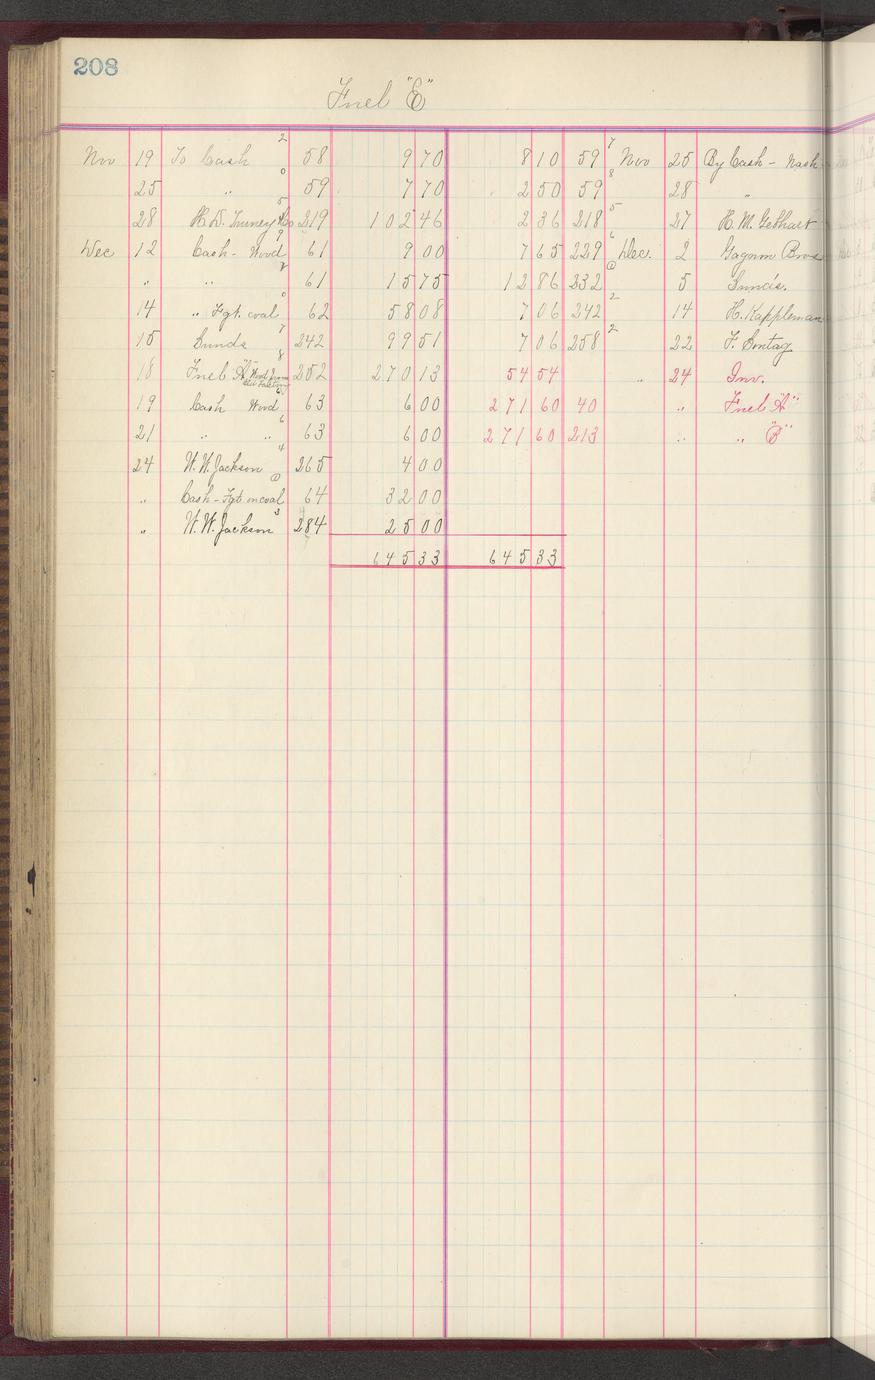 208
Fuel "E"
Nov 19 To Cash 2 58 9 70 8 10 59 7 Nov 25 By Cash - Nash
25 " 0 59 7 70 2 50 59 8 28 "
28 H. D. Turney & Co 5 219 102 46 2 36 218 5 27 H. M. Gebhart
Dec 12 Cash - Wood 9 61 9 00 7 65 229 6 Dec. 2 Gagnon Bros
" " 61 15 75 12 86 232 5 Sunds.
14 " Fgt. coal 0 62 58 08 7 06 242 2 14 H. Kappleman
15 Sunds 7 242 99 51 7 06 258 2 22 F. Sontag
18 Fuel "A" Wood from 8 252 270 13 54 54 " 24 Inv.
19 Cash Wood 63 6 00 271 60 40 " Fuel "A"
21 " " 6 63 6 00 271 60 213 " " "B"
24 W. W. Jackson 4 265 4 00
" Cash - Fgt on coal 64 32 00
" W. W. Jackson 3 284 25 00
645 33 645 33